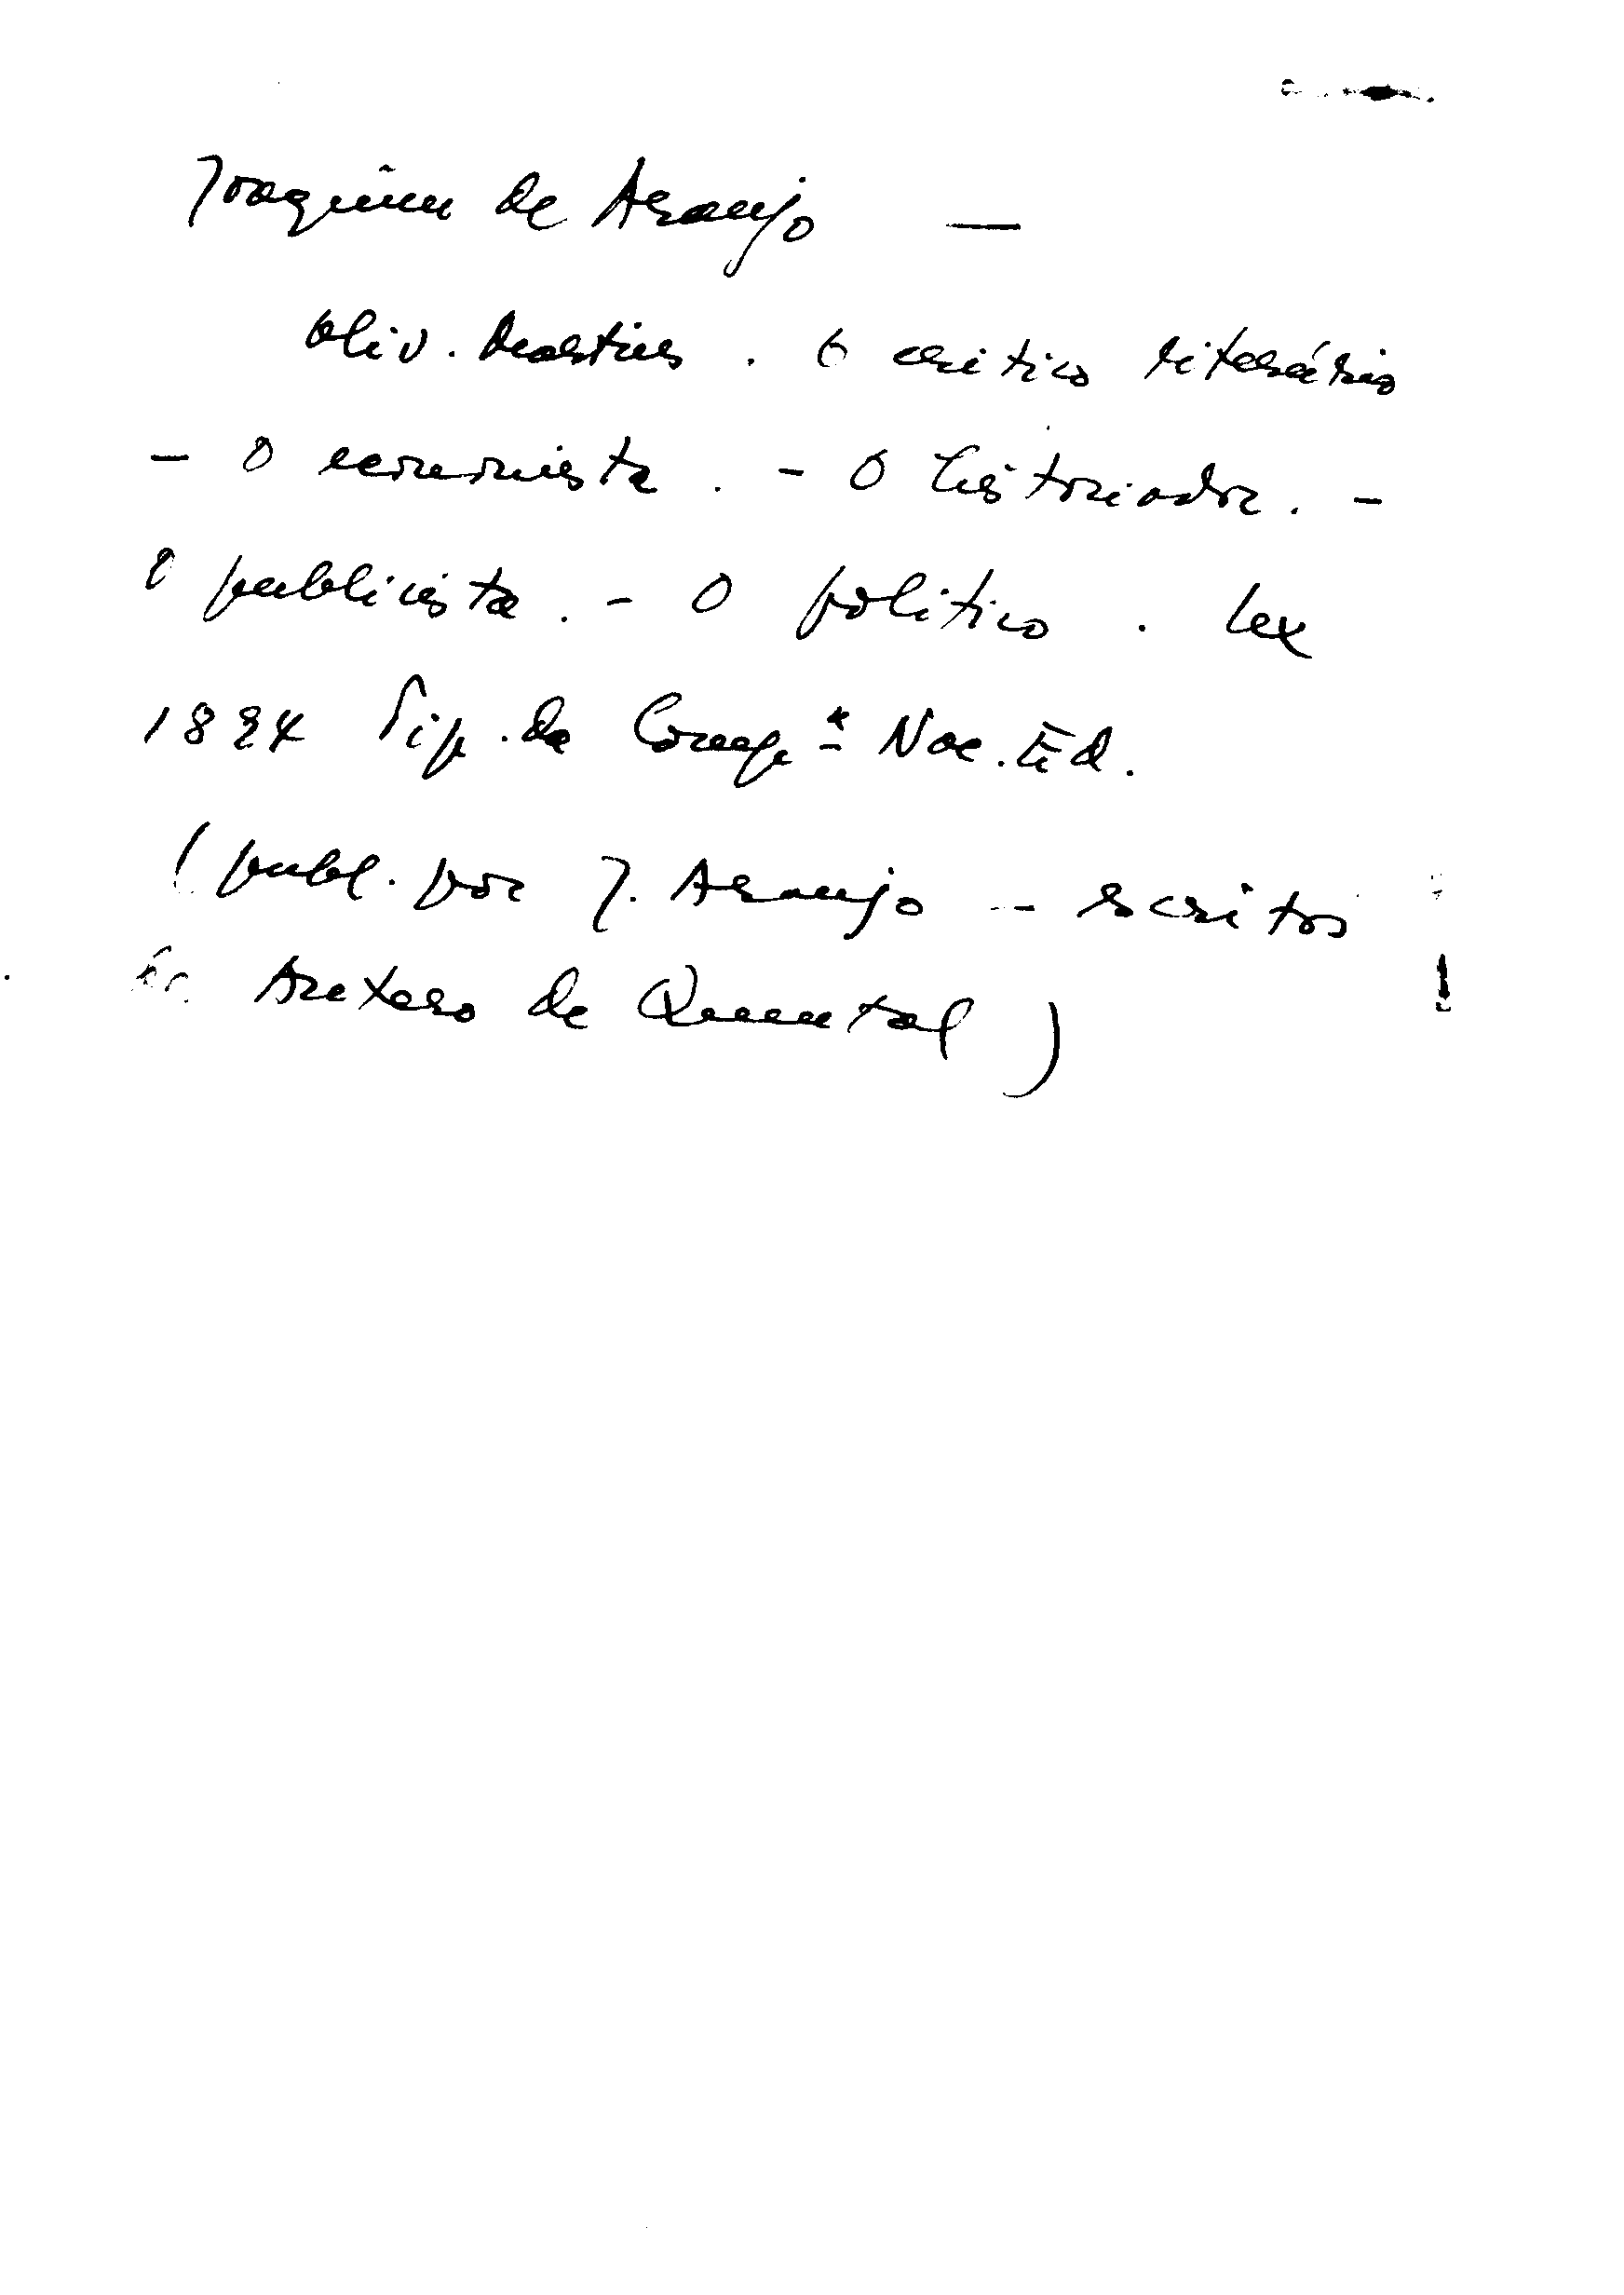 Joaquim de Araujo —
Oliv. Martins. O critico literário
— O economista. - O historiador. -
O publicista. - O politico. Lex
1884 Tip. da Comp.ª Nac. Ed.
(publ. por J. Araujo — escritos
de Antero de Quental)